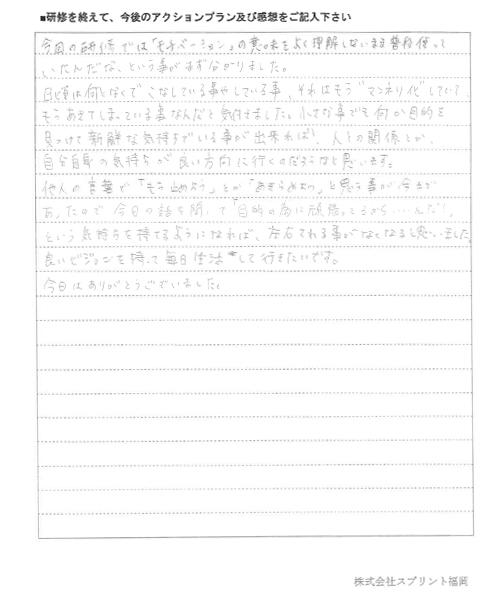 ■研修を終えて、今後のアクションプラン及び感想をご記入下さい
今回の研修では「モチベーション」の意味をよく理解しないまま普段使って
いたんだな、という事がまず分かりました。
日頃は何となくでこなしている事やしている事、それはもう"マンネリ化"していて、
もうあきてしまっている事なんだと気付きました。小さな事でも何か目的を
見つけて新鮮な気持ちでいる事が出来れば、人との関係とか、
自分自身の気持ちが良い方向に行くのだろうなと思います。
他人の言葉で「もう止めよう」とか「あきらめよう」と思う事が今まで
あったので今日の話を聞いて「目的の為に頑張ってるから・・・・んだ!」
という気持ちを持てるようになれば、左右される事がなくなると思いました。
良いビジョンを持って毎日生活して行きたいです。
今日はありがとうございました。
株式会社スプリント福岡